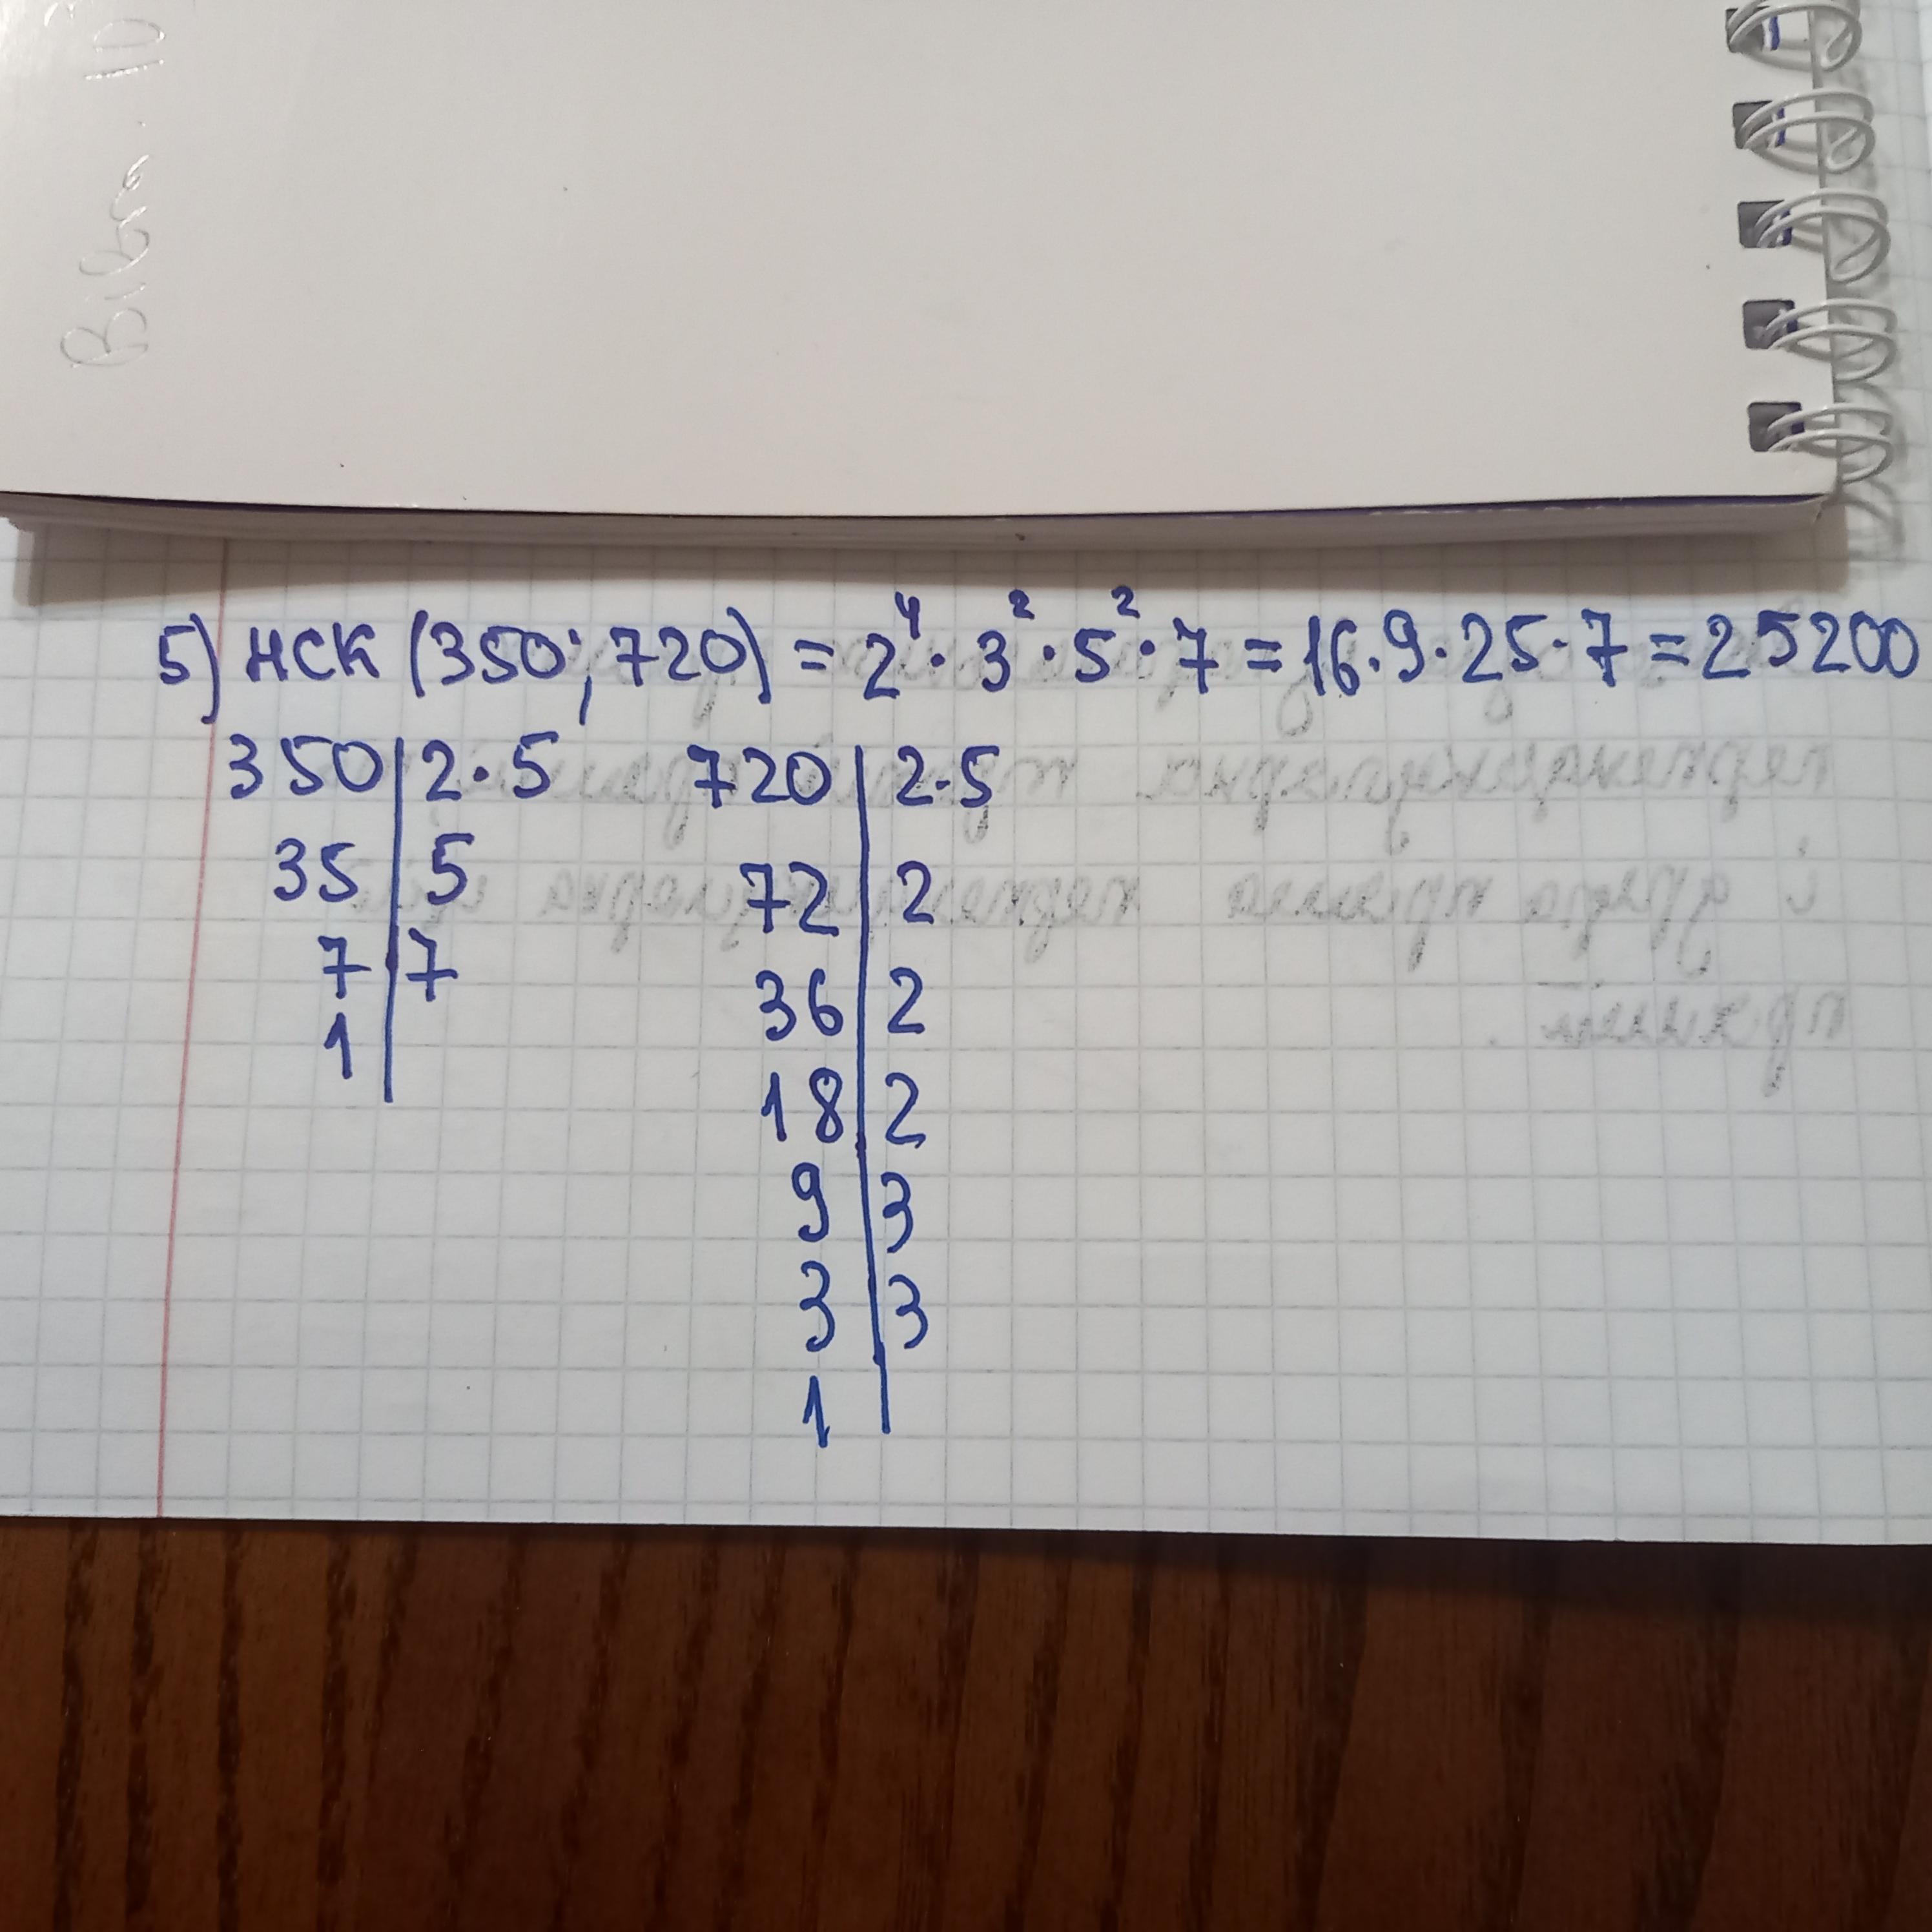 5) НСК (350; 720) = 2⁴ · 3² · 5² · 7 = 16 · 9 · 25 · 7 = 25200
350 | 2 · 5
35 | 5
7 | 7
1 |
720 | 2 · 5
72 | 2
36 | 2
18 | 2
9 | 3
3 | 3
1 |